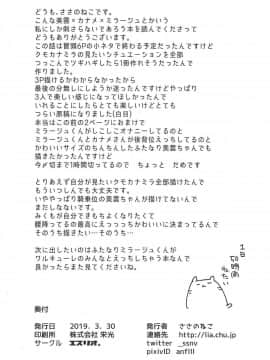 どうも、ささのねこです。
こんな美雲×カナメ×ミラージュとかいう
私にしか刺さらないであろう本を読んでくださって
どうもありがとうございます。
この話は冒頭6Pの小ネタで終わる予定だったんですけど
クモカナミラの見たいシチュエーションを全部
つっこんでツギハギしたら1冊作れそうだったんで
作りました。
3P描けるかわからなかったから
最後の分無しにしようか迷ったんですけどやっぱり
3人で楽しい感じになってほしかったんで
いれることにしたらとても楽しいけどとても
つらい原稿になりました(白目)
本当はこの前の2ページにおまけで
ミラージュくんがしこしこオナニーしてるのと
ミラージュくんとカナメさんが後背位えっちしてるのと
かわいいサイズのちんちんしたふたなり美雲ちゃんも
描きたかったんですけど
今〆切まで1時間切ってるので ちょっと だめです
とりあえず自分が見たいクモカナミラ全部描けたんで
もういつしんでも大丈夫です。
いややっぱり騎乗位の美雲ちゃんが描けてないんで
まだしなないです。
みくもが自分できもちよくなりたくて
腰降ってるの最高にえっっっちかわいいに決まってるんで
そのうち描きたい…そのうち…
次に出したいのはふたなりミラージュくんが
ワルキューレのみんなとえっちするあれな本なんで
良かったらまた見てくださいね。
1日
50時間
ほしい
奥付
発行日 2019. 3. 30
印刷所 株式会社 栄光
サークル エスリオ。
発行者 ささのねこ
連絡先 http://lia.chu.jp
twitter _ssnv
pixivID anfill